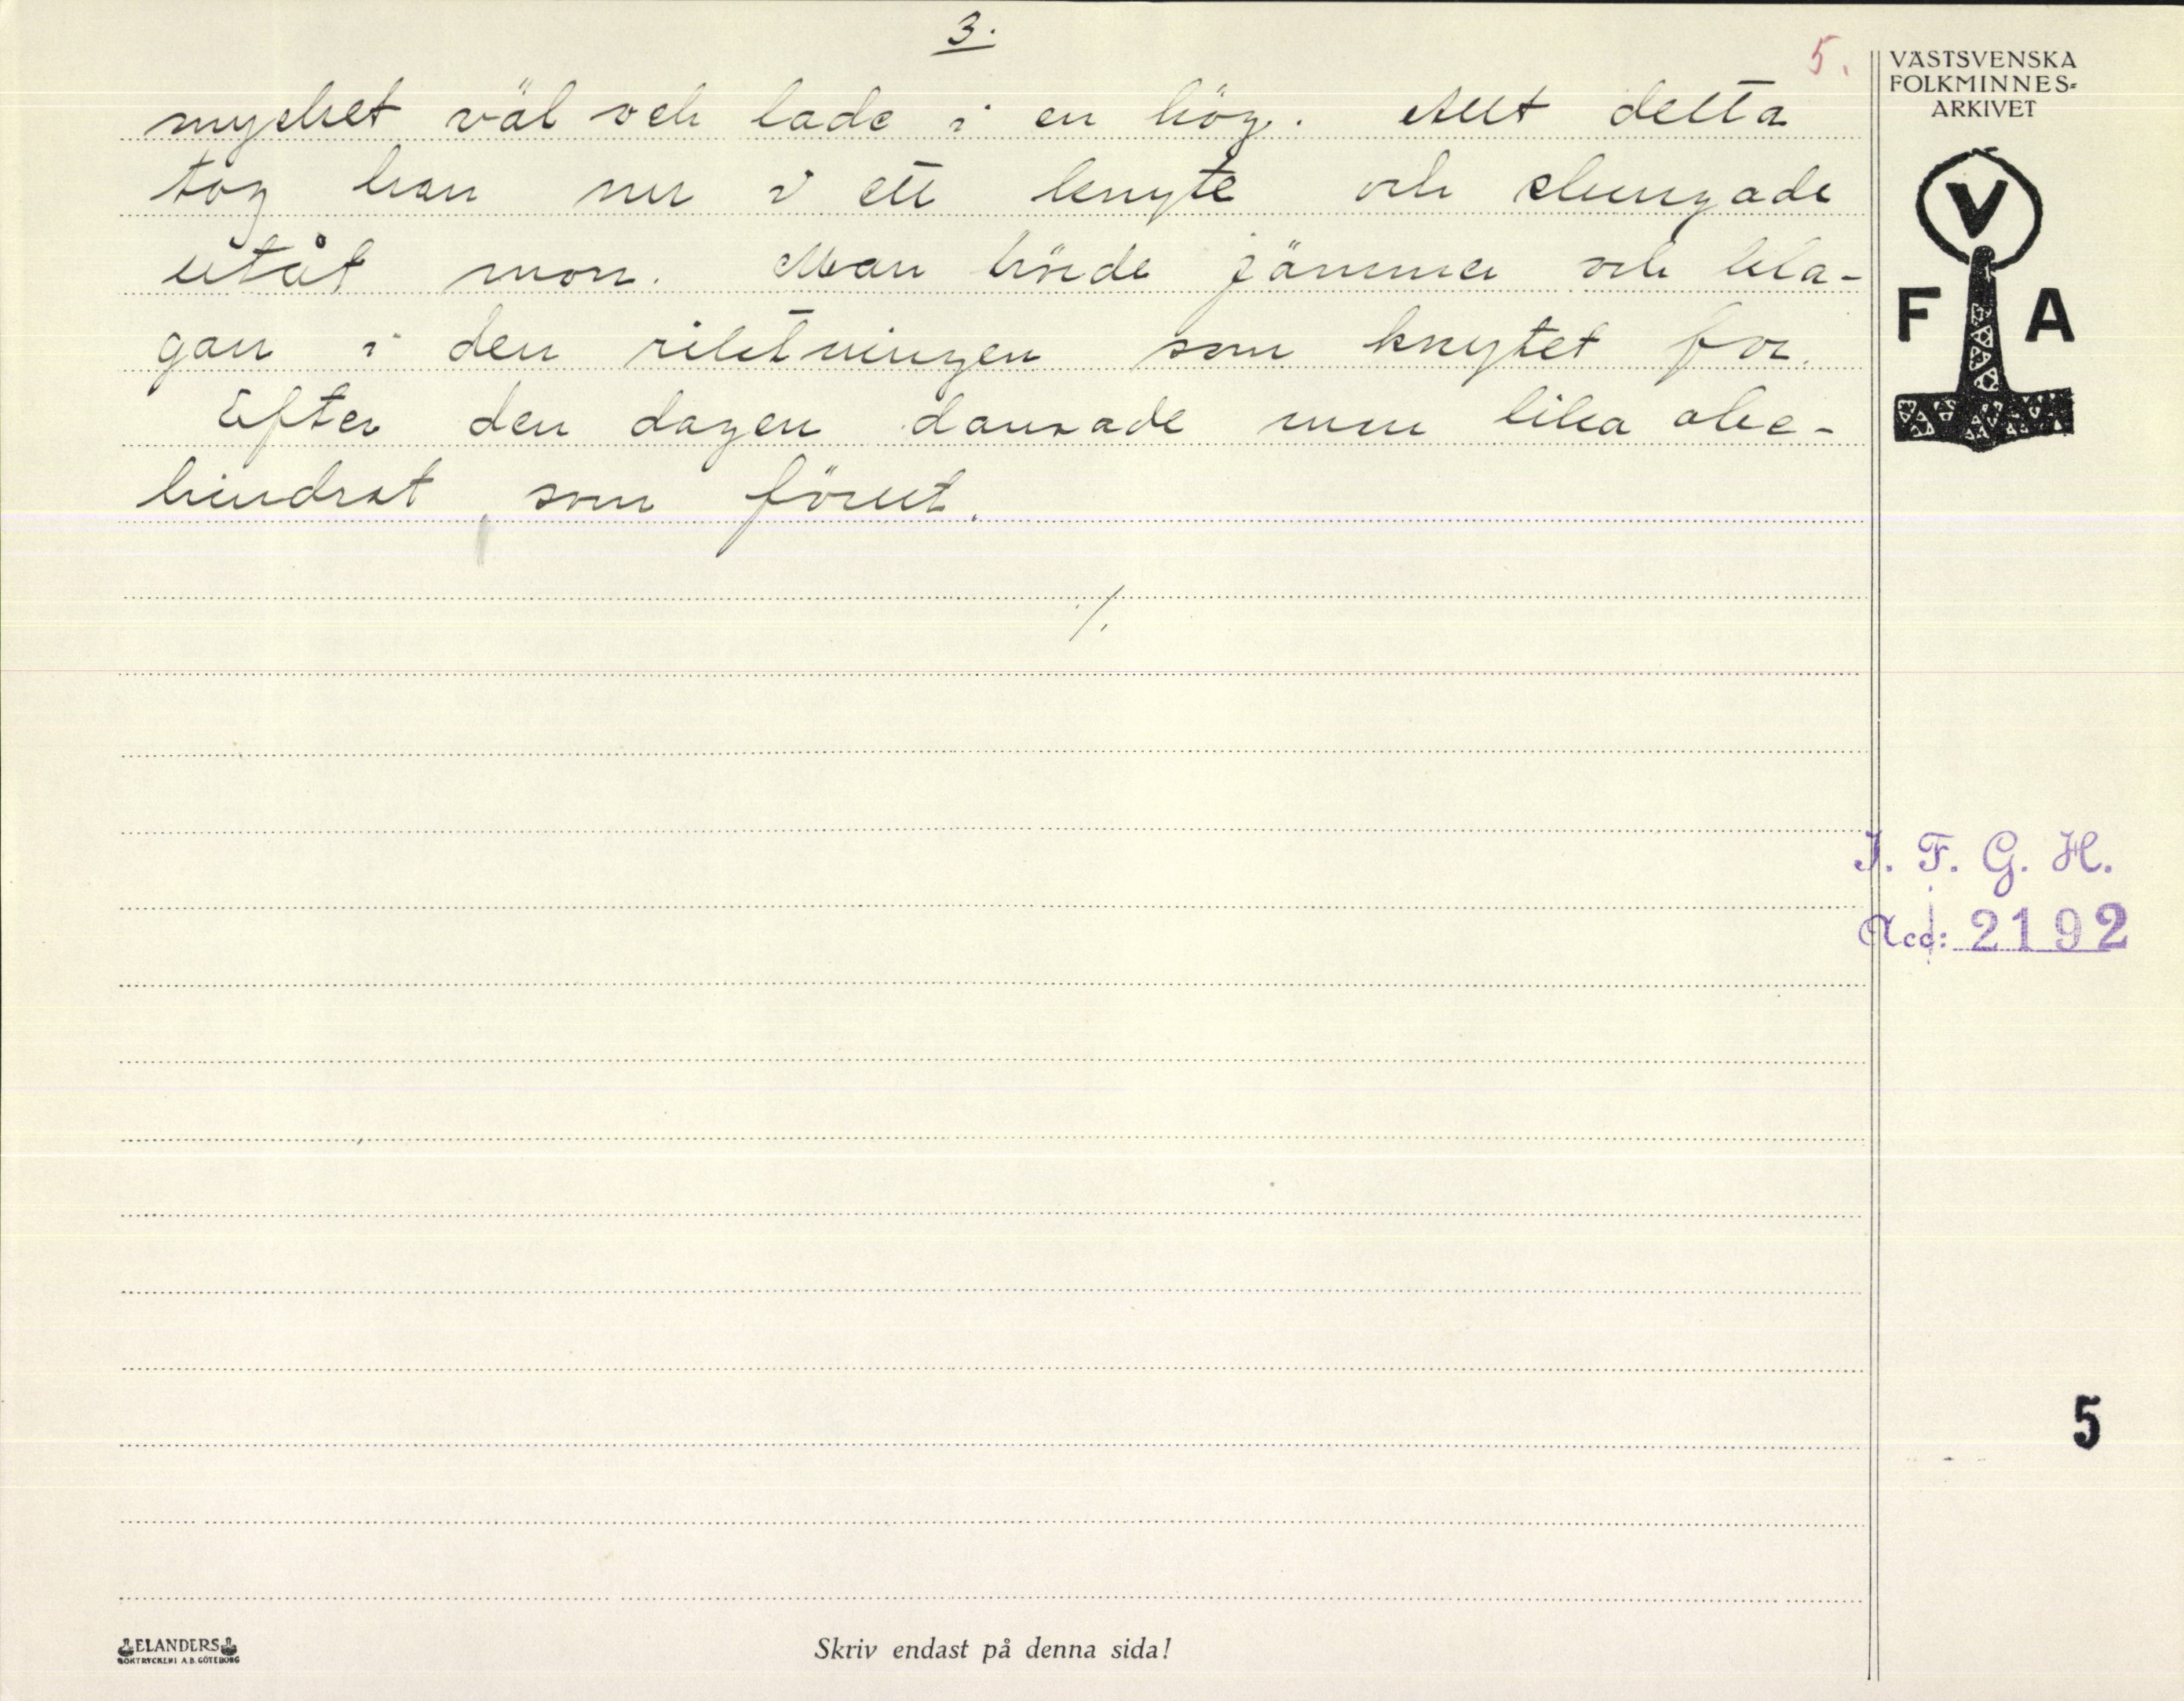 3.
5.
mycket väl och lade i en hög. Allt detta
tog han nu i ett knyte och slungade
utåt mon. Man hörde jämmer och kla-
gan i den riktningen som knytet for.
Efter den dagen dansade man lika obe-
hindrat som förut.
./.
VÄSTSVENSKA
FOLKMINNES-
ARKIVET
V
F A
I. F. G. H.
Acc: 2192
5
ELANDERS
BOKTRYCKERI A.B. GÖTEBORG
Skriv endast på denna sida!